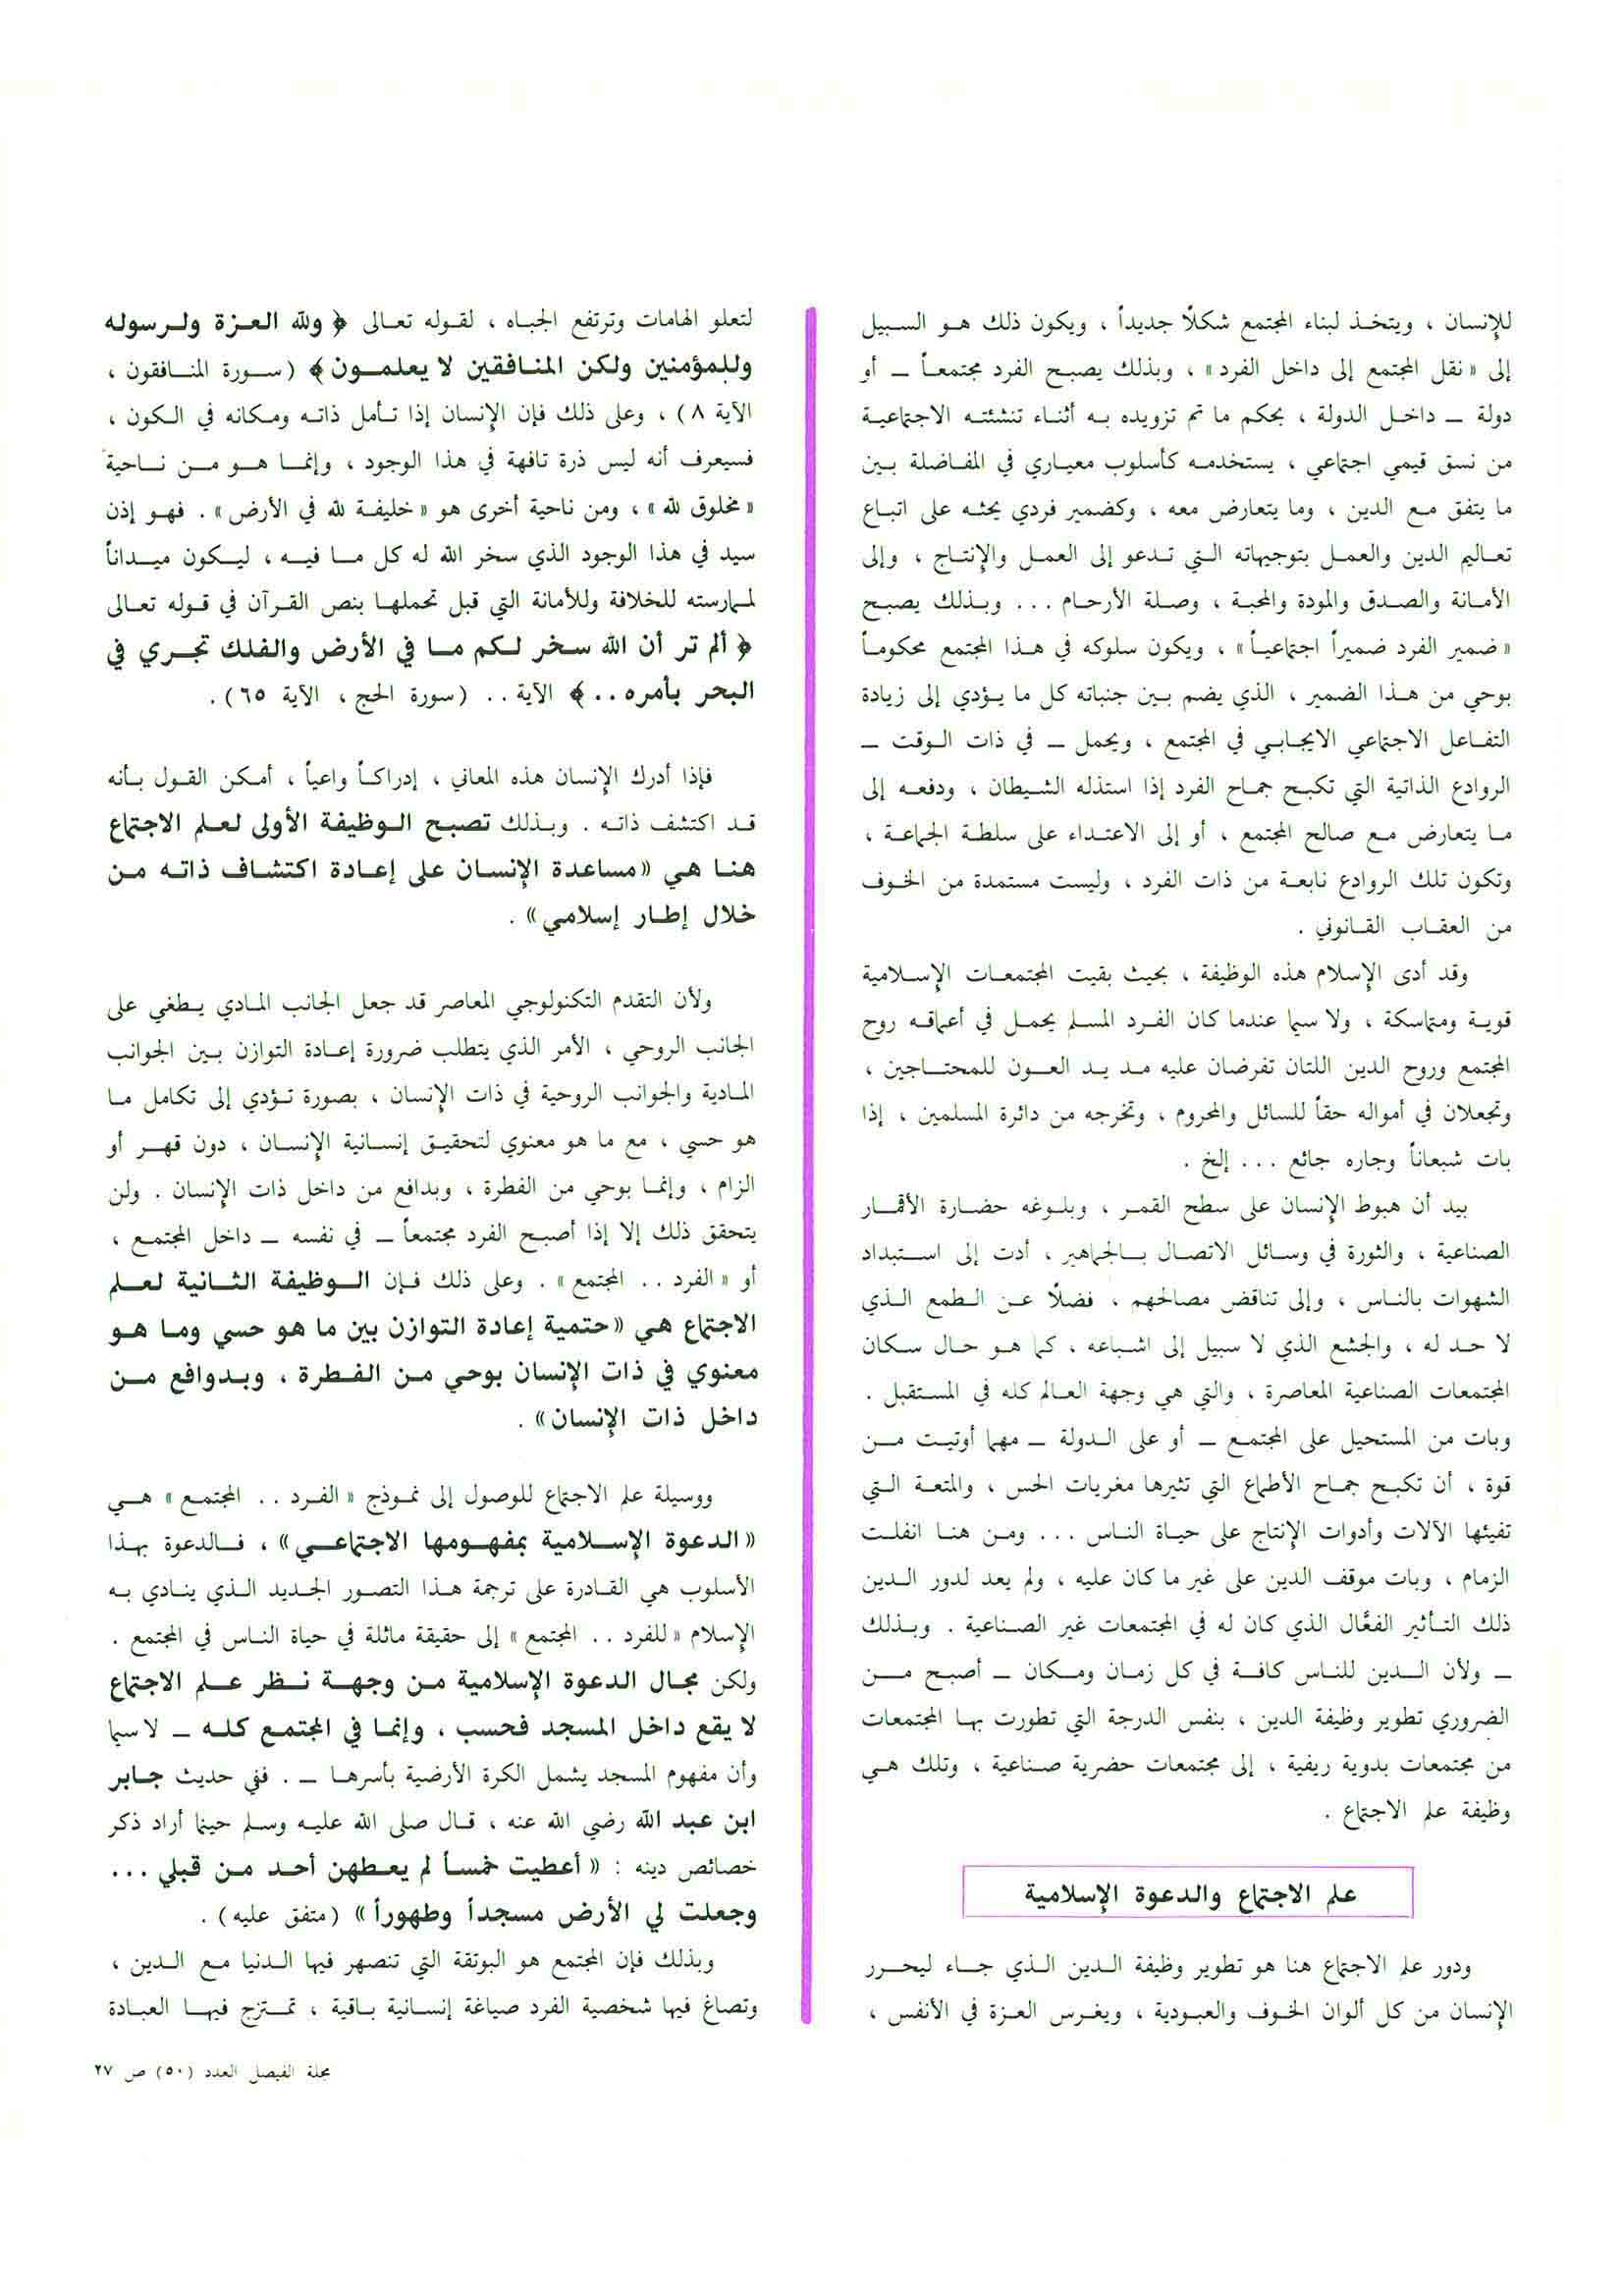 للإنسان ، ويتخذ لبناء المجتمع شكلاً جديداً ، ويكون ذلك هو السبيل
إلى «نقل المجتمع إلى داخل الفرد» ، وبذلك يصبح الفرد مجتمعاً – أو
دولة – داخل الدولة ، بحكم ما تم تزويده به أثناء تنشئته الاجتماعية
من نسق قيمي اجتماعي ، يستخدمه كأسلوب معياري في المفاضلة بين
ما يتفق مع الدين ، وما يتعارض معه ، وكضمير فردي يحثه على اتباع
تعاليم الدين والعمل بتوجيهاته التي تدعو إلى العمل والإنتاج ، وإلى
الأمانة والصدق والمودة والمحبة ، وصلة الأرحام ... وبذلك يصبح
«ضمير الفرد ضميراً اجتماعياً» ، ويكون سلوكه في هذا المجتمع محكوماً
بوحي من هذا الضمير ، الذي يضم بين جنباته كل ما يؤدي إلى زيادة
التفاعل الاجتماعي الايجابي في المجتمع ، ويحمل – في ذات الوقت –
الروادع الذاتية التي تكبح جماح الفرد إذا استذله الشيطان ، ودفعه إلى
ما يتعارض مع صالح المجتمع ، أو إلى الاعتداء على سلطة الجماعة ،
وتكون تلك الروادع نابعة من ذات الفرد ، وليست مستمدة من الخوف
من العقاب القانوني .
وقد أدى الإسلام هذه الوظيفة ، بحيث بقيت المجتمعات الإسلامية
قوية ومتماسكة ، ولا سيما عندما كان الفرد المسلم يحمل في أعماقه روح
المجتمع وروح الدين اللتان تفرضان عليه مد يد العون للمحتاجين ،
وتجعلان في أمواله حقاً للسائل والمحروم ، وتخرجه من دائرة المسلمين ، إذا
بات شبعاناً وجاره جائع ... إلخ .
بيد أن هبوط الإنسان على سطح القمر ، وبلوغه حضارة الأقمار
الصناعية ، والثورة في وسائل الاتصال بالجماهير ، أدت إلى استبداد
الشهوات بالناس ، وإلى تناقض مصالحهم ، فضلاً عن الطمع الذي
لا حد له ، والجشع الذي لا سبيل إلى اشباعه ، كما هو حال سكان
المجتمعات الصناعية المعاصرة ، والتي هي وجهة العالم كله في المستقبل .
وبات من المستحيل على المجتمع – أو على الدولة – مهما أوتيت من
قوة ، أن تكبح جماح الأطماع التي تثيرها مغريات الحس ، والمتعة التي
تفيئها الآلات وأدوات الإنتاج على حياة الناس ... ومن هنا انفلت
الزمام ، وبات موقف الدين على غير ما كان عليه ، ولم يعد لدور الدين
ذلك التأثير الفعَّال الذي كان له في المجتمعات غير الصناعية . وبذلك
– ولأن الدين للناس كافة في كل زمان ومكان – أصبح من
الضروري تطوير وظيفة الدين ، بنفس الدرجة التي تطورت بها المجتمعات
من مجتمعات بدوية ريفية ، إلى مجتمعات حضرية صناعية ، وتلك هي
وظيفة علم الاجتماع .
علم الاجتماع والدعوة الإسلامية
ودور علم الاجتماع هنا هو تطوير وظيفة الدين الذي جاء ليحرر
الإنسان من كل ألوان الخوف والعبودية ، ويغرس العزة في الأنفس ،
لتعلو الهامات وترتفع الجباه ، لقوله تعالى ﴿ ولله العزة ولرسوله
وللمؤمنين ولكن المنافقين لا يعلمون﴾ (سورة المنافقون ،
الآية ٨) ، وعلى ذلك فإن الإنسان إذا تأمل ذاته ومكانه في الكون ،
فسيعرف أنه ليس ذرة تافهة في هذا الوجود ، وإنما هو من ناحية
«مخلوق لله» ، ومن ناحية أخرى هو «خليفة لله في الأرض» . فهو إذن
سيد في هذا الوجود الذي سخر الله له كل ما فيه ، ليكون ميداناً
لممارسته للخلافة وللأمانة التي قبل تحملها بنص القرآن في قوله تعالى
﴿ ألم تر أن الله سخر لكم ما في الأرض والفلك تجري في
البحر بأمره ..﴾ الآية .. (سورة الحج ، الآية ٦٥) .
فإذا أدرك الإنسان هذه المعاني ، إدراكاً واعياً ، أمكن القول بأنه
قد اكتشف ذاته . وبذلك تصبح الوظيفة الأولى لعلم الاجتماع
هنا هي «مساعدة الإنسان على إعادة اكتشاف ذاته من
خلال إطار إسلامي» .
ولأن التقدم التكنولوجي المعاصر قد جعل الجانب المادي يطغي على
الجانب الروحي ، الأمر الذي يتطلب ضرورة إعادة التوازن بين الجوانب
المادية والجوانب الروحية في ذات الإنسان ، بصورة تؤدي إلى تكامل ما
هو حسي ، مع ما هو معنوي لتحقيق إنسانية الإنسان ، دون قهر أو
الزام ، وإنما بوحي من الفطرة ، وبدافع من داخل ذات الإنسان . ولن
يتحقق ذلك إلا إذا أصبح الفرد مجتمعاً – في نفسه – داخل المجتمع ،
أو «الفرد .. المجتمع» . وعلى ذلك فإن الوظيفة الثانية لعلم
الاجتماع هي «حتمية إعادة التوازن بين ما هو حسي وما هو
معنوي في ذات الإنسان بوحي من الفطرة ، وبدوافع من
داخل ذات الإنسان» .
ووسيلة علم الاجتماع للوصول إلى نموذج «الفرد .. المجتمع» هي
«الدعوة الإسلامية بمفهومها الاجتماعي» ، فالدعوة بهذا
الأسلوب هي القادرة على ترجمة هذا التصور الجديد الذي ينادي به
الإسلام «للفرد .. المجتمع» إلى حقيقة ماثلة في حياة الناس في المجتمع .
ولكن مجال الدعوة الإسلامية من وجهة نظر علم الاجتماع
لا يقع داخل المسجد فحسب ، وإنما في المجتمع كله – لا سيما
وأن مفهوم المسجد يشمل الكرة الأرضية بأسرها – . ففي حديث جابر
ابن عبد الله رضي الله عنه ، قال صلى الله عليه وسلم حينما أراد ذكر
خصائص دينه : «أعطيت خمساً لم يعطهن أحد من قبلي ...
وجعلت لي الأرض مسجداً وطهوراً» (متفق عليه) .
وبذلك فإن المجتمع هو البوتقة التي تنصهر فيها الدنيا مع الدين ،
وتصاغ فيها شخصية الفرد صياغة إنسانية باقية ، تمتزج فيها العبادة
مجلة الفيصل العدد (٥٠) ص ٢٧